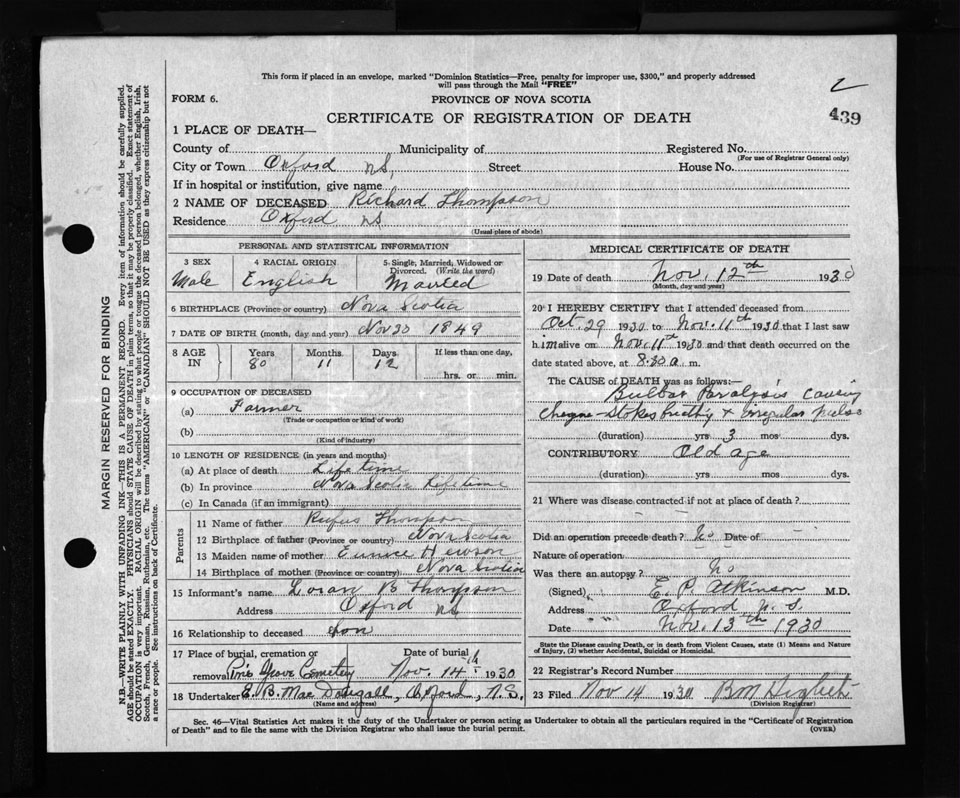 This form if placed in an envelope, marked "Dominion Statistics—Free, penalty for improper use, $300," and properly addressed
will pass through the Mail "FREE"
2
FORM 6.
PROVINCE OF NOVA SCOTIA
439
CERTIFICATE OF REGISTRATION OF DEATH
1 PLACE OF DEATH—
County of Municipality of Registered No.
(For use of Registrar General only)
City or Town Oxford N.S. Street House No.
If in hospital or institution, give name
2 NAME OF DECEASED Richard Thompson
Residence Oxford NS
(Usual place of abode)
PERSONAL AND STATISTICAL INFORMATION
3 SEX 4 RACIAL ORIGIN 5 Single, Married, Widowed or
Divorced. (Write the word)
Male English Married
6 BIRTHPLACE (Province or country) Nova Scotia
7 DATE OF BIRTH (month, day and year) Nov 30 1849
8 AGE Years Months Days If less than one day,
IN 80 11 12 hrs. or min.
9 OCCUPATION OF DECEASED
(a) Farmer
(Trade or occupation or kind of work)
(b)
(Kind of industry)
10 LENGTH OF RESIDENCE (in years and months)
(a) At place of death Life time
(b) In province Nova Scotia Life time
(c) In Canada (if an immigrant)
Parents
11 Name of father Rufus Thompson
12 Birthplace of father (Province or country) Nova Scotia
13 Maiden name of mother Eunice Hewson
14 Birthplace of mother (Province or country) Nova Scotia
15 Informant's name B Thompson
Address Oxford NS
16 Relationship to deceased Son
17 Place of burial, cremation or Date of burial
removal Pine Grove Cemetery Nov. 14th 1930
18 Undertaker E. B. Mac Dougall, Oxford, N.S.
(Name and address)
MEDICAL CERTIFICATE OF DEATH
19 Date of death Nov. 12th 1930
(Month, day and year)
20 I HEREBY CERTIFY that I attended deceased from
Oct 29 1930 to Nov. 11th 1930 that I last saw
him alive on Nov. 11th 1930 and that death occurred on the
date stated above, at 8.30 a. m.
The CAUSE of DEATH was as follows:—
Bulbar Paralysis causing
Cheyne-Stokes breathing + irregular pulse
(duration) yrs 3 mos dys.
CONTRIBUTORY Old age
(duration) yrs mos dys.
21 Where was disease contracted if not at place of death?
Did an operation precede death? No Date of
Nature of operation
Was there an autopsy? No
(Signed) E. P. Atkinson M.D.
Address Oxford N.S.
Date Nov. 13th 1930
State the Disease causing Death, or in death from Violent Causes, state (1) Means and Nature
of Injury, (2) whether Accidental, Suicidal or Homicidal.
22 Registrar's Record Number
23 Filed Nov 14 1930 B M
(Division Registrar)
Sec. 46—Vital Statistics Act makes it the duty of the Undertaker or person acting as Undertaker to obtain all the particulars required in the "Certificate of Registration
of Death" and to file the same with the Division Registrar who shall issue the burial permit.
(OVER)
MARGIN RESERVED FOR BINDING
N.B.—WRITE PLAINLY WITH UNFADING INK—THIS IS A PERMANENT RECORD. Every item of information should be carefully supplied.
AGE should be stated EXACTLY. PHYSICIANS should STATE CAUSE OF DEATH in plain terms, so that it may be properly classified. Exact statement of
OCCUPATION is very important. RACIAL ORIGIN will be described by stating to what people or tongue the deceased person belonged, whether English, Irish,
Scotch, French, German, Russian, Ruthenian, etc. The terms "AMERICAN" or "CANADIAN" SHOULD NOT BE USED as they express citizenship but not
a race or people. See instructions on back of Certificate.